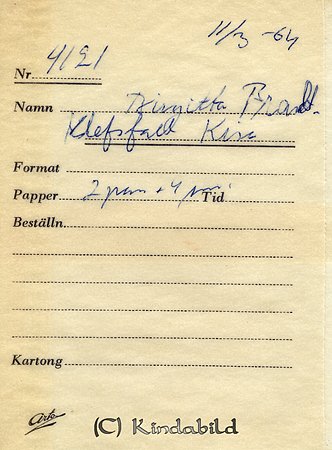 11/3 -64
Nr. 4121
Namn Birgitta Brandt
Klefsfall Kisa
Format
Papper 2 prov + 4 prov Tid
Beställn
Kartong
Arte
(C) Kindabild